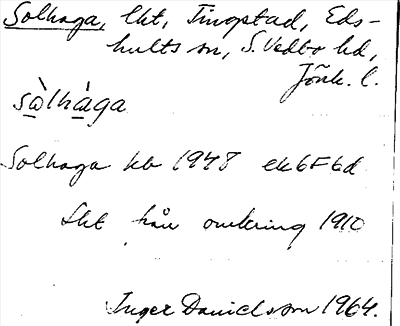 Solhaga, lht, Tingstad, Eds-
hults sn, S. Vedbo hd,
Jönk. l.
sòlhàga
Solhaga kb 1948 ek 6F6d
Lht från omkring 1910
Inger Danielsson 1964.